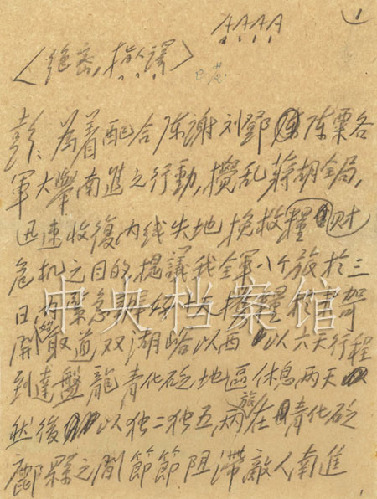 AAAA
1
〈绝密，指譯〉
彭：為着配合陈谢刘鄧陈粟各
軍大舉南進之行動，攪乱蒋胡全局，
迅速收復内线失地挽救糧財
危机之目的，提議我全軍八个旅於三
日内緊急
開
道双湖峪以西以六天行程
到達盤龍青化砭地區休息两天
然後以独二独五两旅在青化砭
鄜县之间節節阻滞敵人南進
中央档案馆